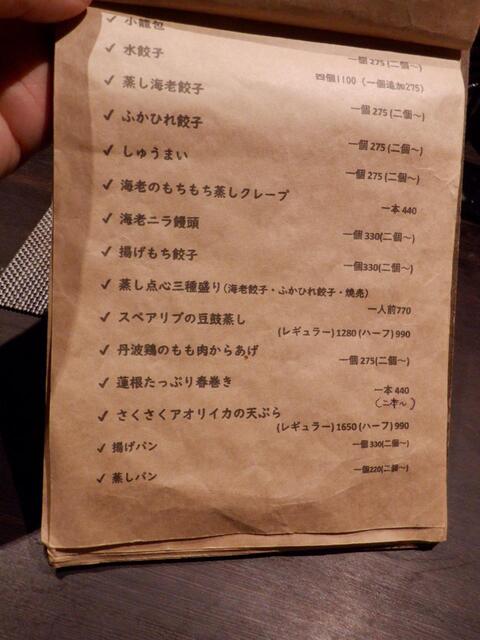 ✓ 小籠包
一個 275(二個～)
✓ 水餃子
四個1100（一個追加275）
✓ 蒸し海老餃子
一個 275 (二個～)
✓ ふかひれ餃子
一個 275 (二個～)
✓ しゅうまい
一個 275 (二個～)
✓ 海老のもちもち蒸しクレープ
一本 440
✓ 海老ニラ饅頭
一個 330(二個～)
✓ 揚げもち餃子
一個330(二個～)
✓ 蒸し点心三種盛り(海老餃子・ふかひれ餃子・焼売)
一人前770
✓ スペアリブの豆鼓蒸し
(レギュラー) 1280 (ハーフ) 990
✓ 丹波鶏のもも肉からあげ
一個 275(二個～)
✓ 蓮根たっぷり春巻き
一本 440
(二本～)
✓ さくさくアオリイカの天ぷら
(レギュラー) 1650 (ハーフ) 990
✓ 揚げパン
一個 330(二個～)
✓ 蒸しパン
一個220(二個～)